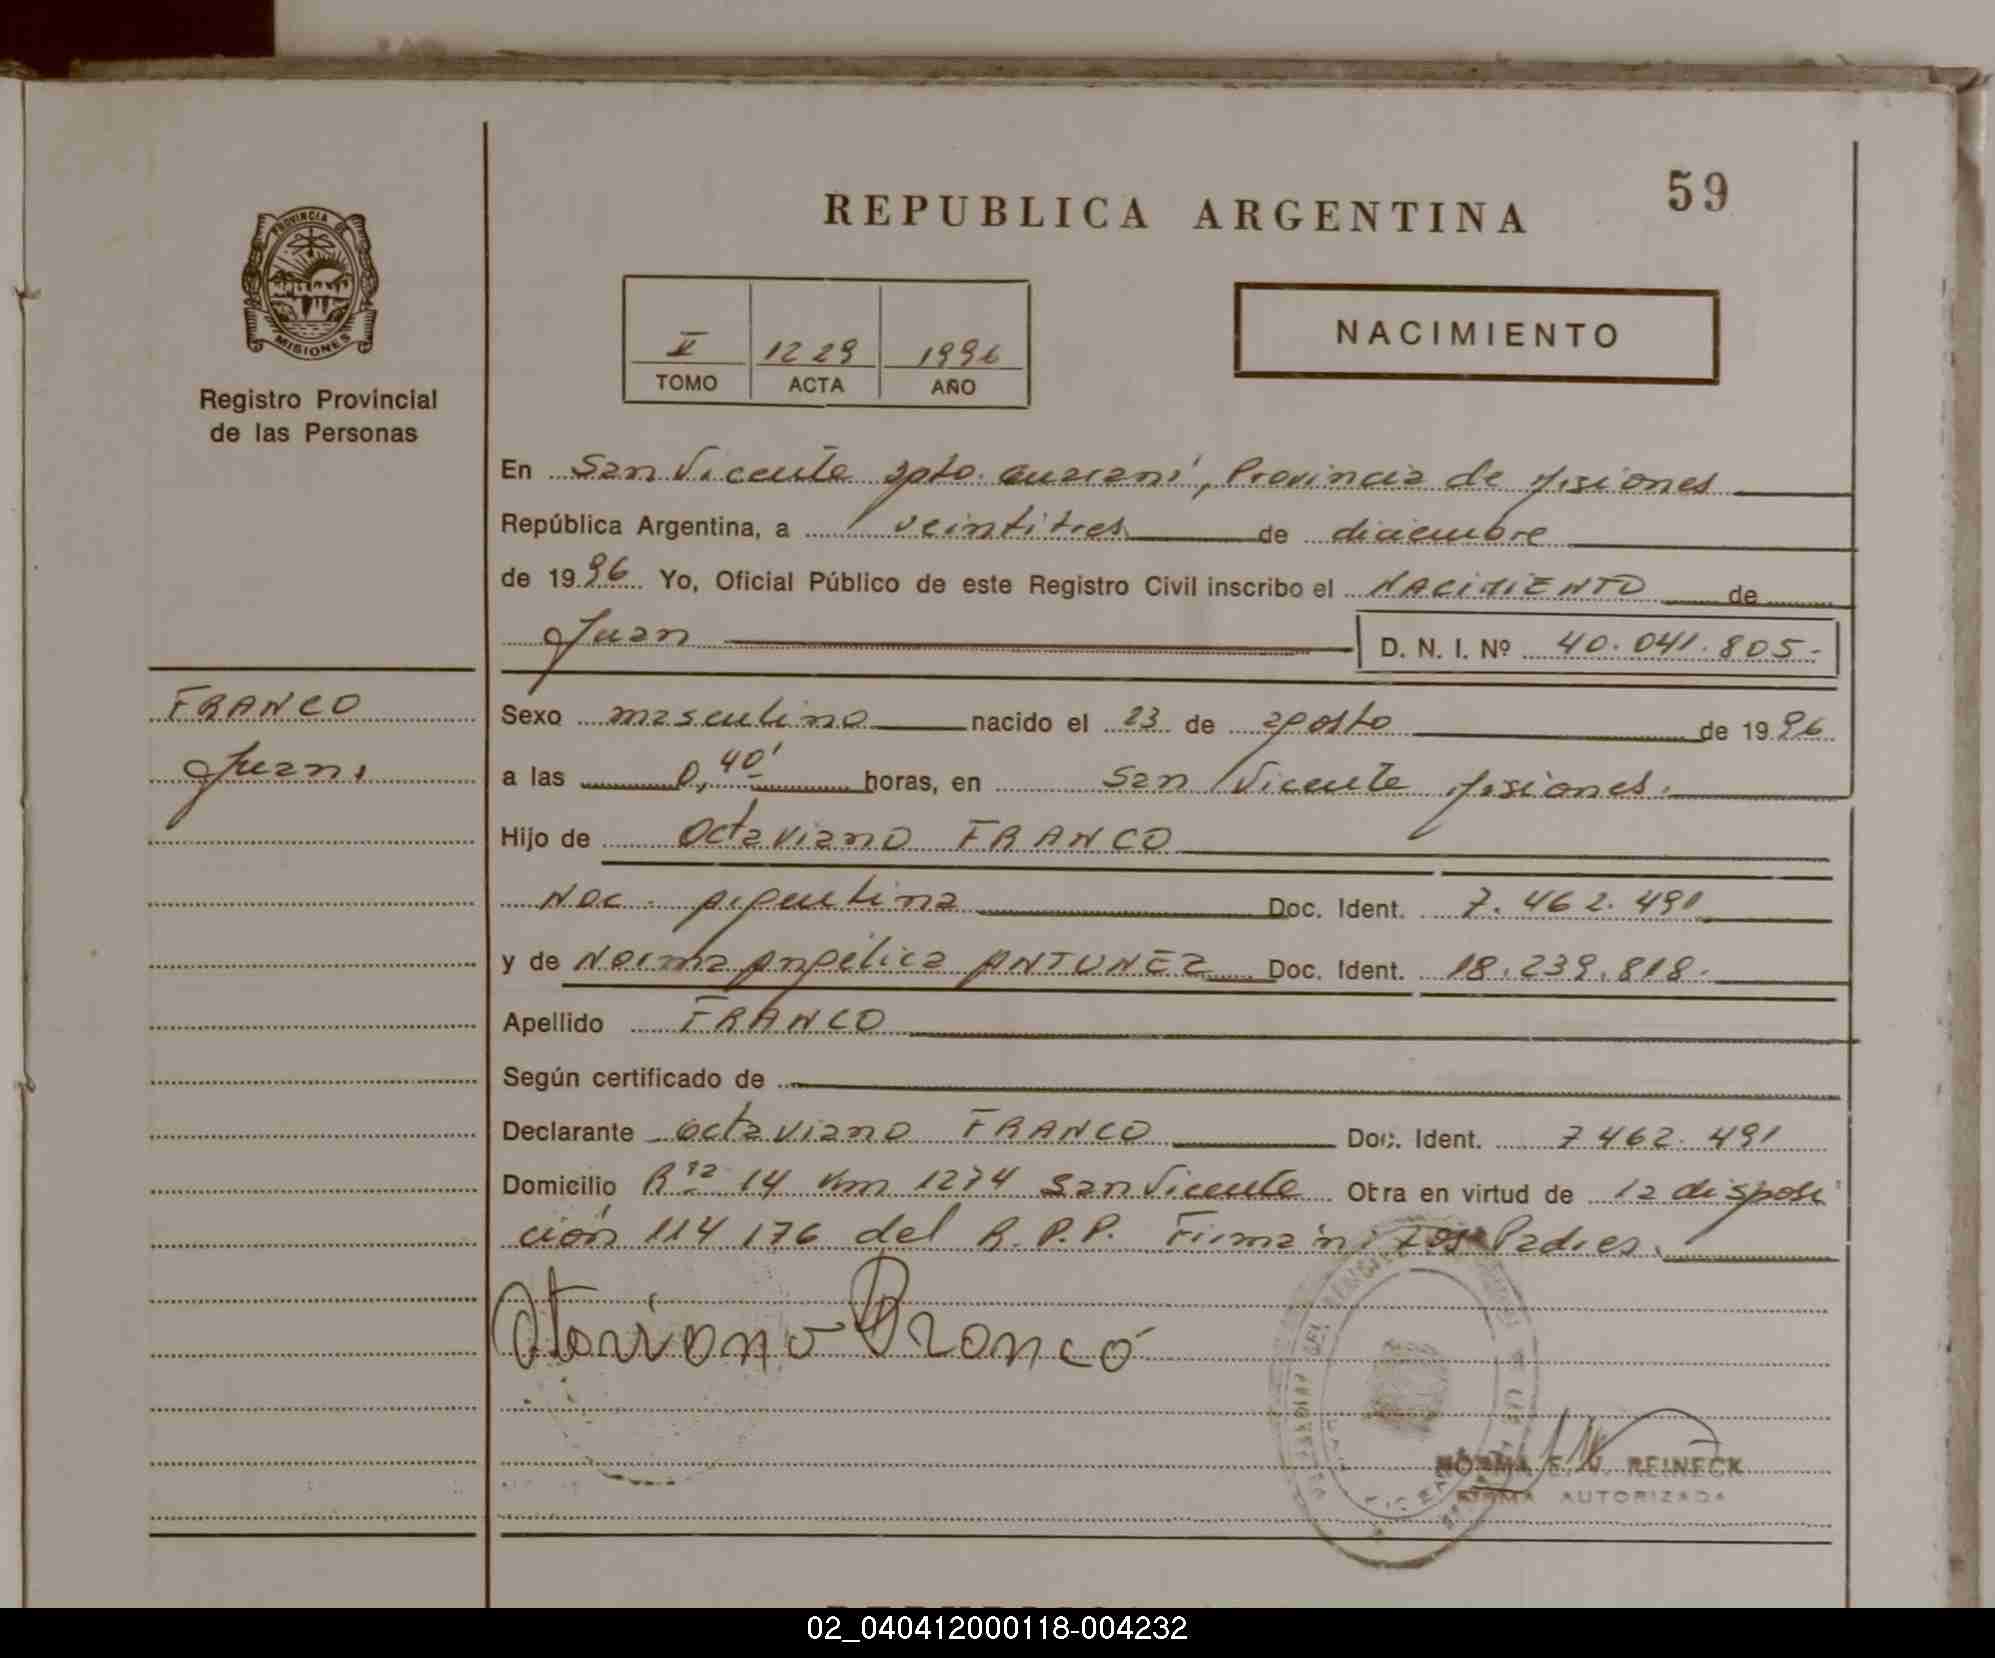 59
REPUBLICA ARGENTINA
PROVINCIA DE
MISIONES
Registro Provincial
de las Personas
1229 1996
TOMO ACTA AÑO
NACIMIENTO
En San Vicente Dpto. Guaraní, Provincia de Misiones
República Argentina, a veintitres de diciembre
de 1996 Yo, Oficial Público de este Registro Civil inscribo el NACIMIENTO de
Juan D. N. I. Nº 40.041.805-
FRANCO
Juan
Sexo masculino nacido el 23 de agosto de 1996
a las 0,40' horas, en San Vicente Misiones.
Hijo de Octaviano FRANCO
Nac. Argentina Doc. Ident. 7.462.491
y de Norma Angélica ANTUNEZ Doc. Ident. 18.239.818.
Apellido FRANCO
Según certificado de
Declarante Octaviano FRANCO Doc. Ident. 7462.491
Domicilio Rta 14 Km 1274 San Vicente Otra en virtud de la disposi
ción 114 176 del R.P.P. Firman los Padres.
NORMA E. N. REINECK
FIRMA AUTORIZADA
02_040412000118-004232